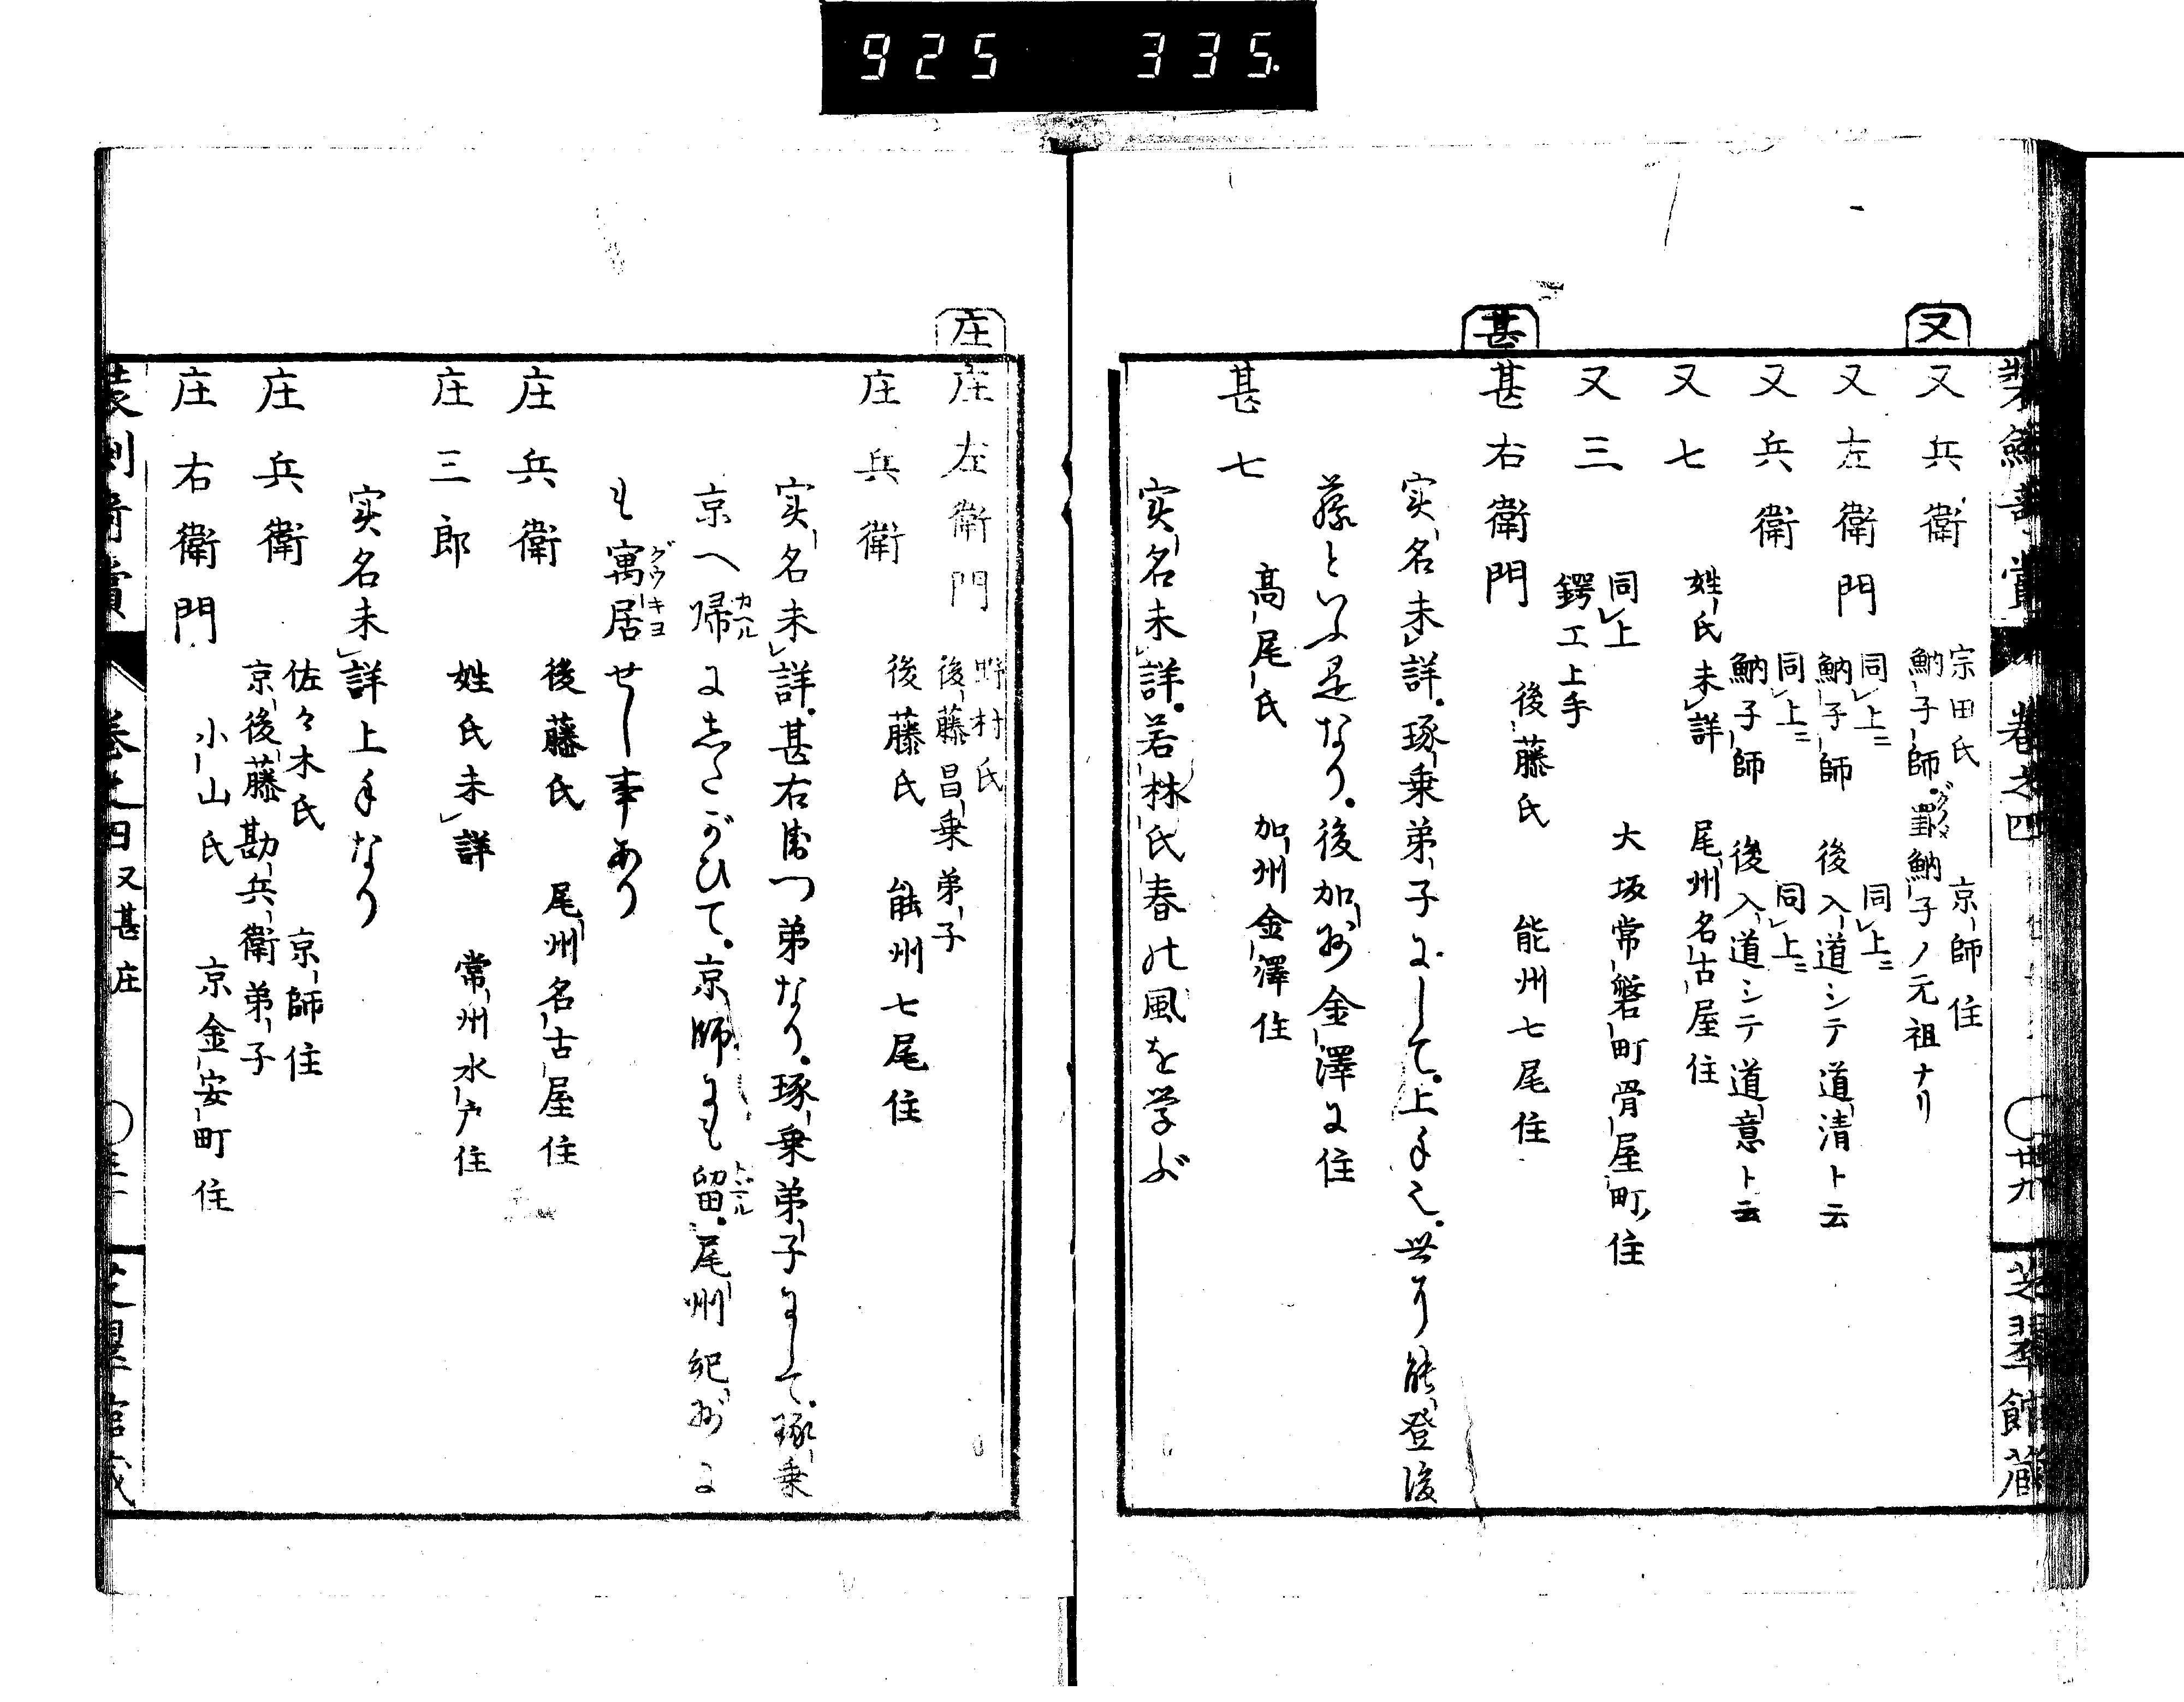 925 335.
又
甚
又兵衛 宗田氏 京師住
魶子師。罫魶子ノ元祖ナリ
又左衛門 同上ニ 同上ニ
魶子師 後入道シテ道清ト云
又兵衛 同上ニ 同上ニ
魶子師 後入道シテ道意ト云
又七 姓氏未詳 尾州名古屋住
又三 同上 大坂常磐町骨屋町住
鍔工上手
甚右衛門 後藤氏 能州七尾住
実名未詳。琢乗弟子にして。上手也。世に能登後
藤といふ是なり。後加州金澤に住
甚七 高尾氏 加州金澤住
実名未詳。若林氏春の風を学ぶ
巻之四
芝翠館蔵
庄
庄左衛門 野村氏
後藤昌乗弟子
庄兵衛 後藤氏 能州七尾住
実名未詳。甚右衛門弟なり。琢乗弟子にして。琢乗
京へ帰カヘルにしたがひて。京師にも留トドマル。尾州紀州に
も寓居グウキヨせし事あり
庄兵衛 後藤氏 尾州名古屋住
庄三郎 姓氏未詳 常州水戸住
実名未詳上手なり
庄兵衛 佐々木氏 京師住
京後藤勘兵衛弟子
庄右衛門 小山氏 京金安町住
又甚庄